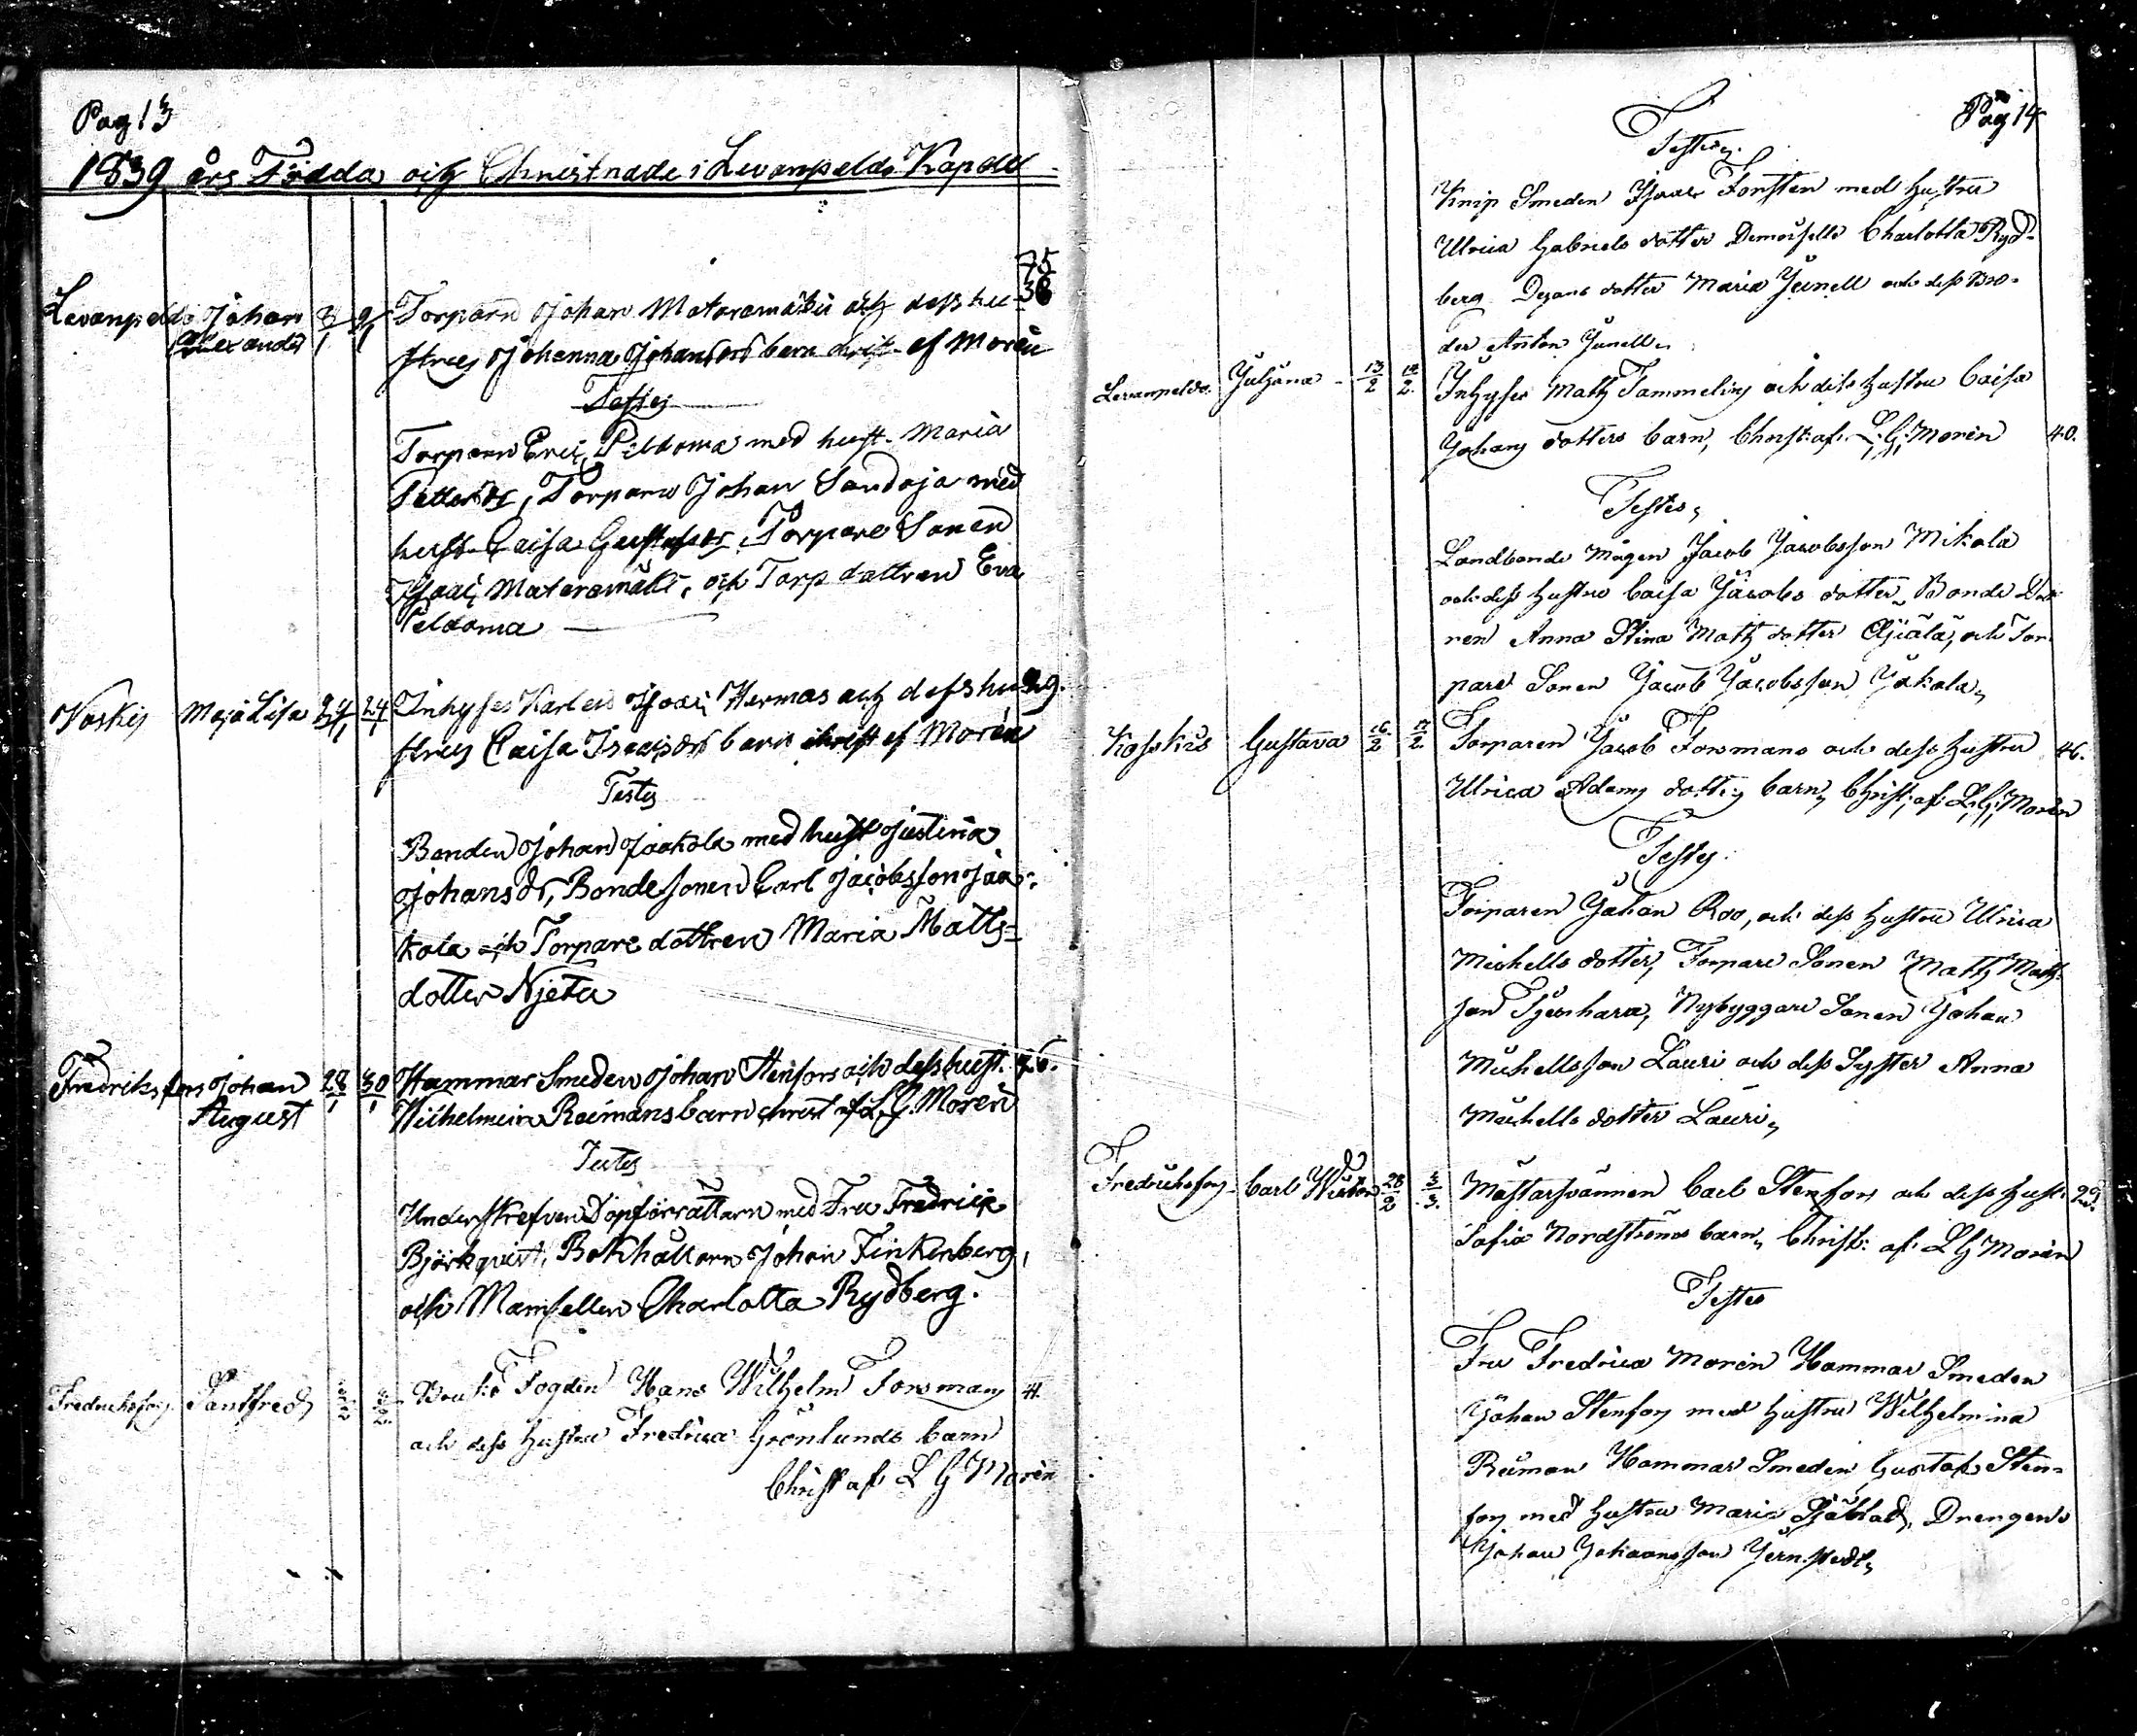 Pag 13
1839 års Födda och Christnade i Levanpeldo Kapell
75
Levanpeldo Johan Alexander 8/1 9/1 Torparn Johan Mataramäki och dess hu- 38
strus Johanna Johansdrs barn christ. af Morén
Testes
Torparn Eric Peldoma med hust. Maria
Pettersdr, Torparn Johan Sandoja med
hust. Caisa Gustafsdr, Torpare Sonen
Isaac Mataramäki, och Torp dattren Eva
Peldoma
Koskis Maja Lisa 24/1 24/1 Inhyses Karlen Isaac Hermas och dess hu- 29.
strus Caisa Isacsdrs barn christ af Morén
Testes
Bonden Johan Jaakola med hust Justina
Johansdr, Bondesonen Carl Jacobsson Jaa-
kola och Torpare dottren Maria Matts-
dotter Njeta
Fredriksfors Johan August 28/1 30/1 Hammar Smeden Johan Stenfors och dess hust. 26.
Wilhelmina Reimans barn christ af L.G. Morén
Testes
Underskrefven Dopförrättarn med Fru Fredrica
Björkqvist, Bokhållarn Johan Finkenberg,
och Mamsellen Charlotta Rydberg.
Fredrichsfors Santfred Bruks Fogden Hans Wilhelm Forsmans 41.
och dess hustru Fredrica Grönlunds barn
Christ af L G Morén
Pag 14
Testes
Knip Smeden Isaac Forsten med hustru
Ulrica Gabriels dotter Demoiselle Charlotta Ryd-
berg Degars dotter Maria Junell och dess Bro-
der Anton Junell,
Levanpeldo. Juljana 13/2 Inhyses Matts Tammelin och dess hustru Caisa
Johans dotters barn, Christ: af. L: G: Morén 40.
Testes,
Landbonde Mågen Jacob Jacobsson Mikola
och dess hustru Caisa Jacobs dotter, Bonde Dot-
ren Anna Stina Matts dotter Äijälä, och Tor-
pare Sonen Jacob Jacobsson Jakola,
Koskis Gustava 16/2 17/2 Torparen Jacob Forsmans och dess hustru 46.
Ulrica Adams dotters barn, Christ: af: L: G: Morén
Testes.
Torparen Johan Roo, och dess hustru Ulrica
Michells dotter, Torpare Sonen Matts Matts-
son Tjenhara, Nybyggare Sonen Johan
Michellsson Lauri och dess Syster Anna
Michells dotter Lauri,
Fredrichsfors Carl Victor 28/2 3/3. Mästarsvännen Carl Stenfors och dess hust: 29.
Sofia Nordströms barn, Christ: af L G Morén
Testes
Fru Fredrica Morén Hammar Smeden
Johan Stenfors med hustru Wilhelmina
Reiman Hammar Smeden Gustaf Sten-
fors med hustru Maria Sjöblad, Drengen
Johan Johansson Jernstedt,